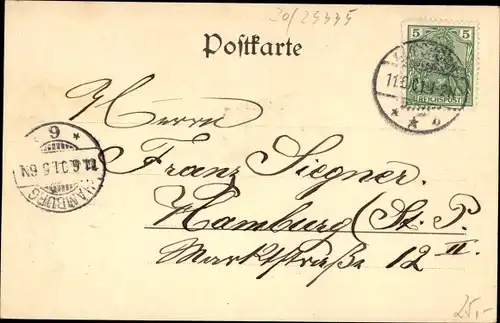 30/25335
Postkarte
5 5
REICHSPOST
11.6.01
Herrn
Franz Siegner.
Hamburg (St. P.
Marktstraße 12 II.
HAMBURG
11.6.01.5-6N
9
25,-